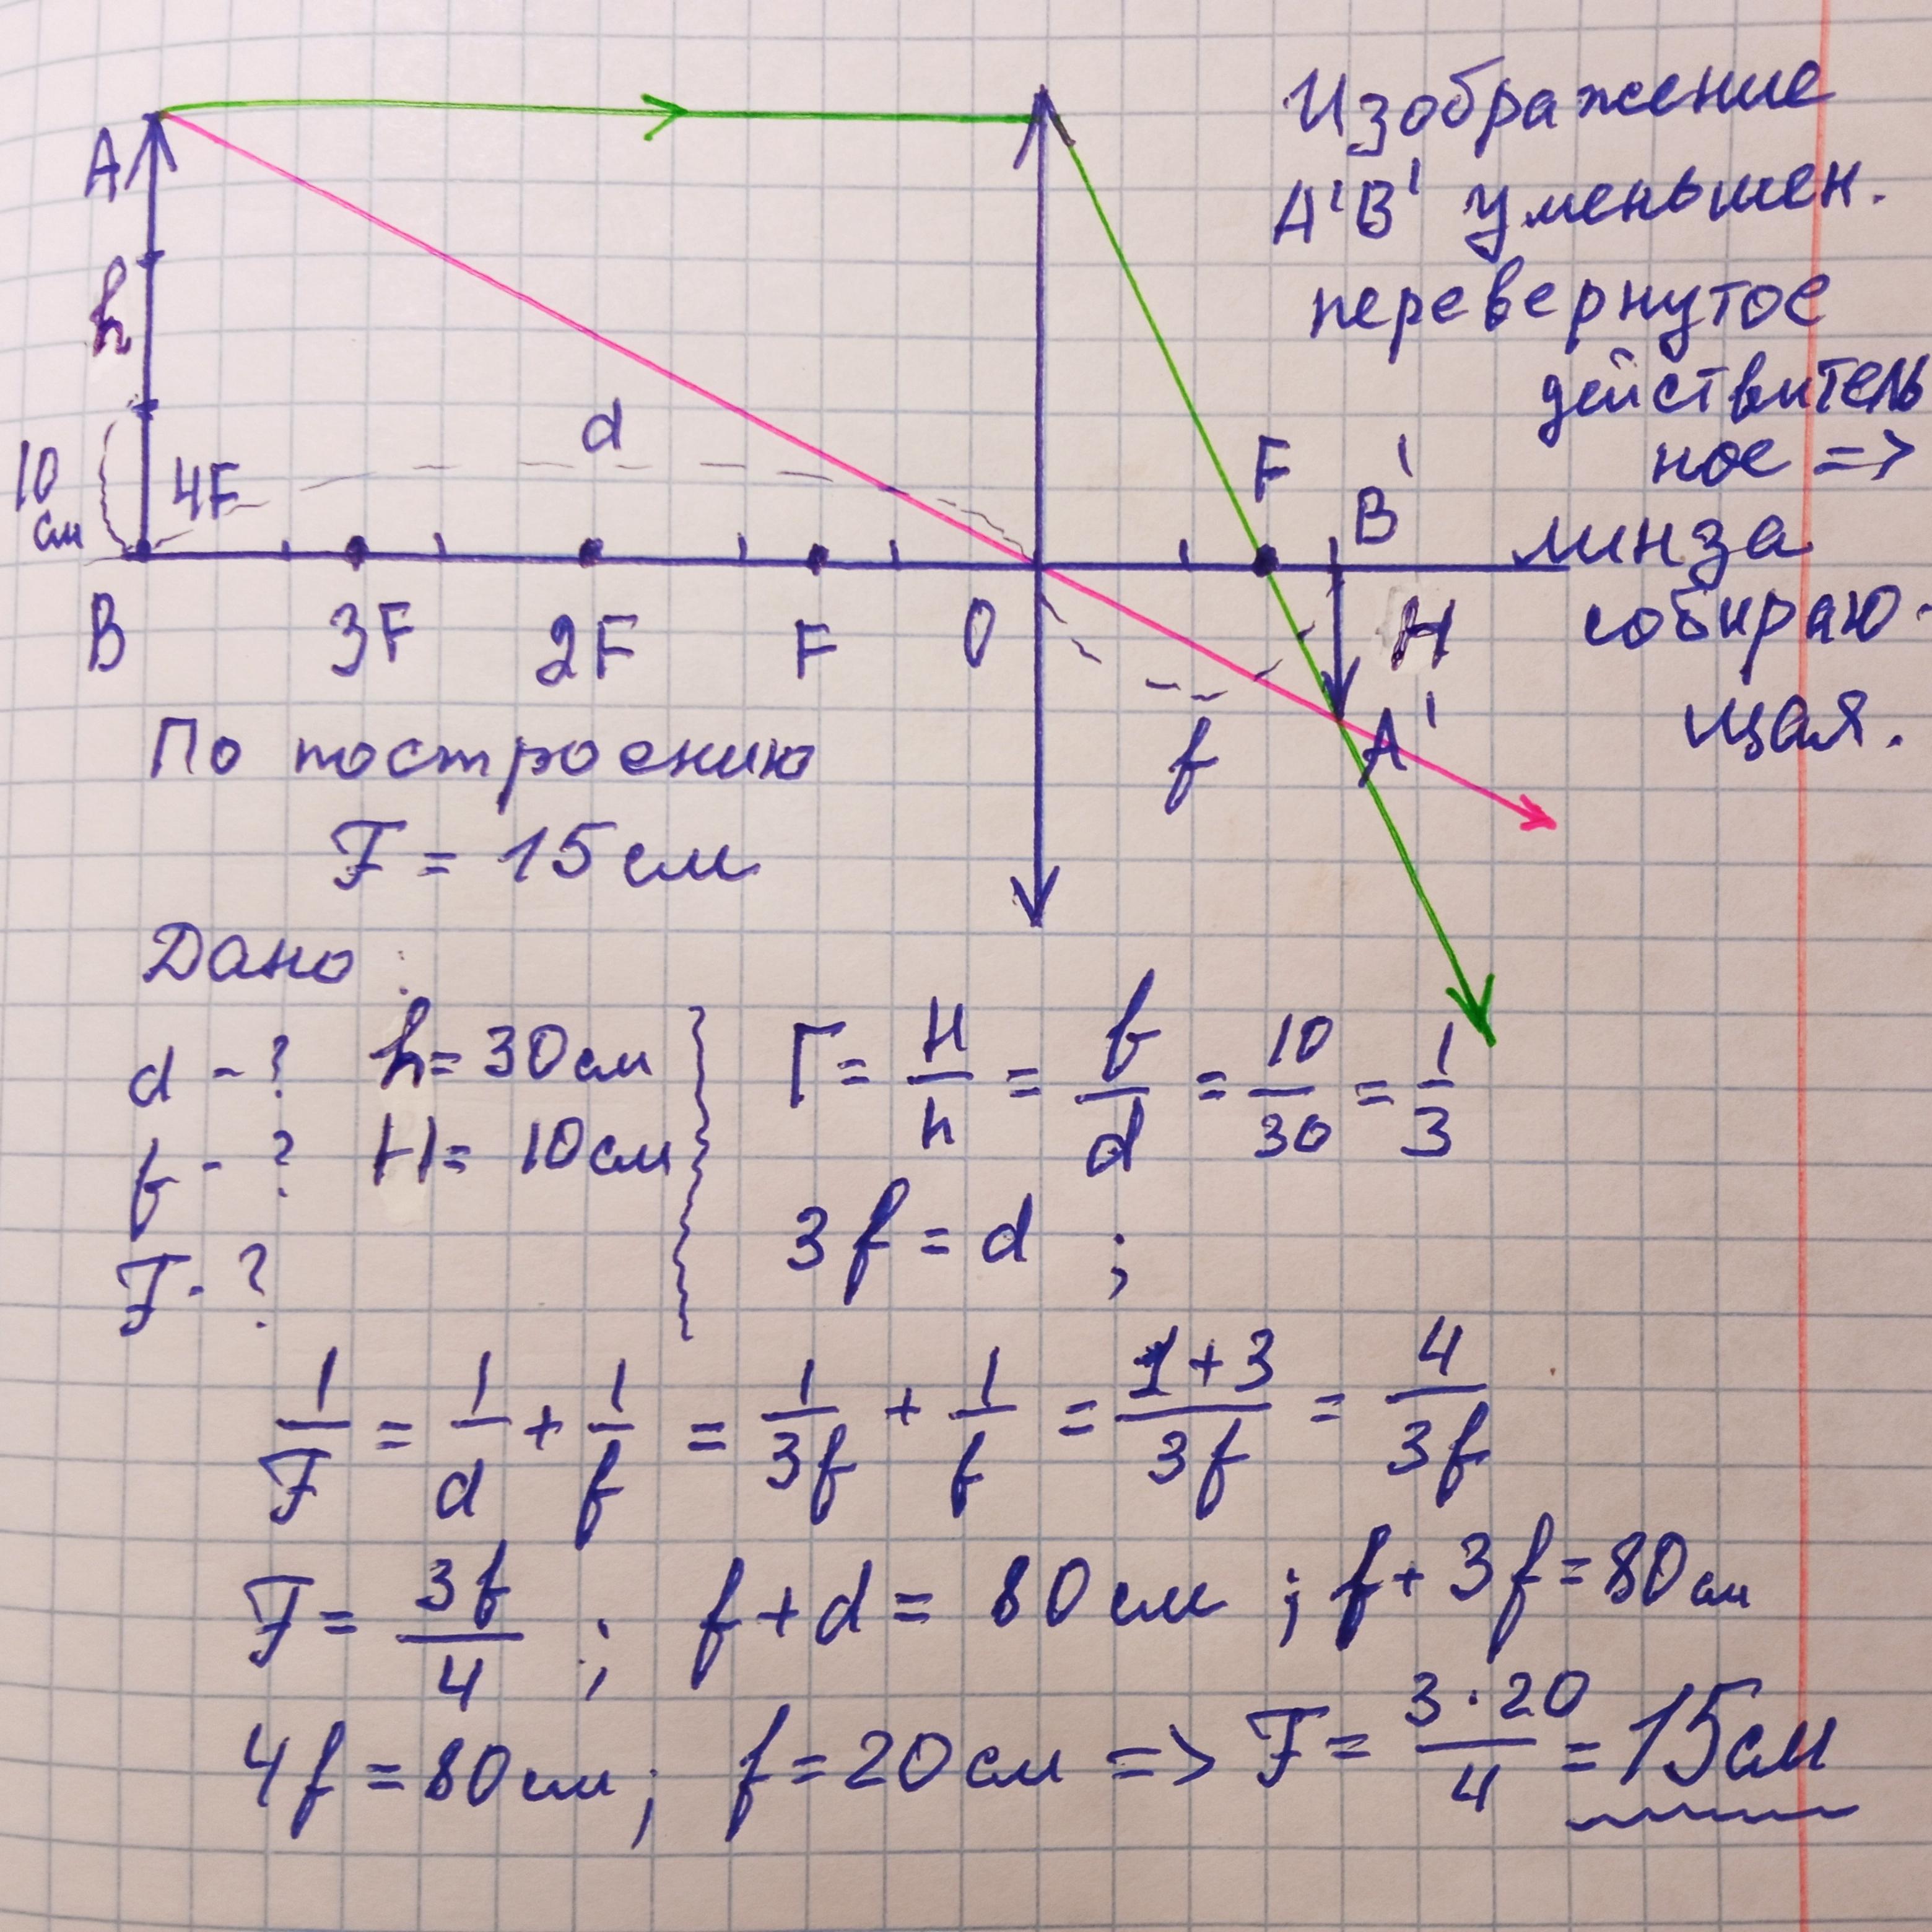 Изображение
A'B' уменьшен.
перевернутое
действитель
ное =>
линза
собираю-
щая.
A
h
d
10
см
4F
F
B'
B
3F
2F
F
O
H
f
A'
По построению
F = 15 см
Дано:
d - ? h = 30 см
f - ? H = 10 см
F - ?
Г = H/h = f/d = 10/30 = 1/3
3f = d ;
1/F = 1/d + 1/f = 1/3f + 1/f = 1+3/3f = 4/3f
F = 3f/4 ; f + d = 80 см ; f + 3f = 80 см
4f = 80 см ; f = 20 см => F = 3·20/4 = 15 см